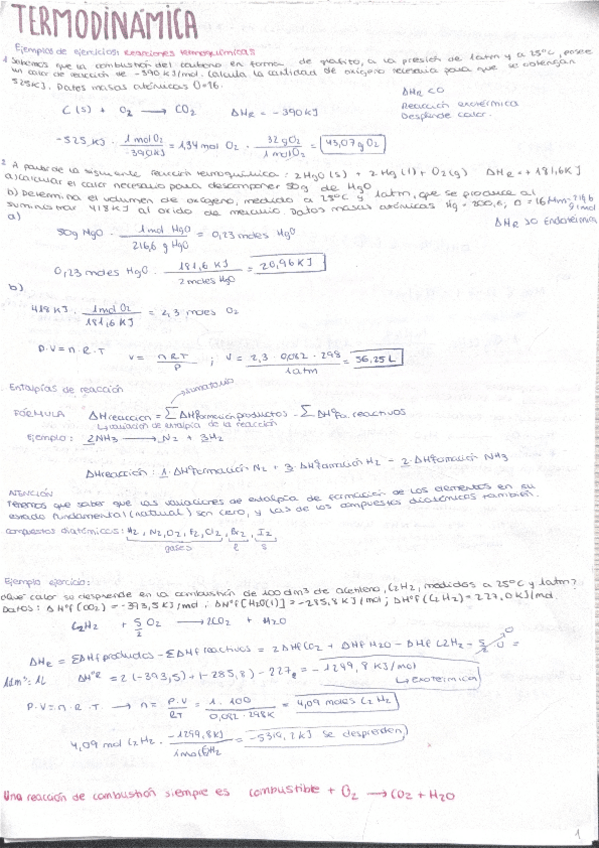 TERMODINÁMICA
Ejemplos de ejercicios: Reacciones termoquímicas
1 Sabemos que la combustión del carbono en forma de grafito, a la presión de 1atm y a 25ºC, posee
un calor de reacción de -390 KJ/mol. Calcula la cantidad de oxígeno necesaria para que se obtengan
525KJ. Datos masas atómicas O=16.
ΔHR <0
Reacción exotérmica
Desprende calor.
C(s) + O2 → CO2 ΔHR = -390KJ
-525 KJ · 1 mol O2 / -390KJ = 1,34 mol O2 · 32 g O2 / 1 mol O2 = 43,07g O2
2 A partir de la siguiente reacción termoquímica: 2HgO(s) + 2Hg(l) + O2(g) ΔHR = +181,6KJ
a) Calcular el calor necesario para descomponer 50g de HgO
b) Determina el volumen de oxígeno, medido a 25ºC y 1atm, que se produce al
suministrar 418KJ al óxido de mercurio. Datos masas atómicas Hg = 200,6, O = 16 Mm=216,6 g/mol
ΔHR >0 Endotérmica
a)
50g HgO · 1mol HgO / 216,6 g HgO = 0,23 moles HgO
0,23 moles HgO · 181,6 KJ / 2 moles HgO = 20,96 KJ
b)
418KJ · 1mol O2 / 181,6 KJ = 2,3 moles O2
P·V=n·R·T V= nRT / P ; V = 2,3 · 0,082 · 298 / 1atm = 56,25 L
Entalpías de reacción
sumatorio
FÓRMULA ΔH reacción = Σ ΔHº formación productos - Σ ΔHº fo. reactivos
↳ variación de entalpía de la reacción
Ejemplo: 2NH3 → N2 + 3H2
ΔH reacción: 1·ΔHº formación N2 + 3·ΔHº formación H2 - 2·ΔHº formación NH3
ATENCIÓN
Tenemos que saber que las variaciones de entalpía de formación de los elementos en su
estado fundamental (natural) son cero, y las de los compuestos diatómicos también.
compuestos diatómicos: H2, N2, O2, F2, Cl2, Br2, I2
gases l s
Ejemplo ejercicio:
¿Qué calor se desprende en la combustión de 100 dm3 de acetileno, C2H2, medidos a 25ºC y 1atm?
Datos: ΔHºf (CO2) = -393,5 KJ/mol; ΔHºf [H2O(l)] = -285,8 KJ/mol; ΔHºf (C2H2) = 227,0 KJ/mol.
C2H2 + 5/2 O2 → 2CO2 + H2O
ΔHR = ΣΔHf productos - ΣΔHf reactivos = 2ΔHf CO2 + ΔHf H2O - ΔHf C2H2 - 5/2 0 =
1dm3 = 1L ΔHºR = 2(-393,5) + (-285,8) - 227 = -1299,8 KJ/mol
↳ exotérmica
P·V=n·R·T → n = P·V / RT = 1·100 / 0,082·298K = 4,09 moles C2H2
4,09 mol C2H2 · -1299,8KJ / 1mol C2H2 = -5319,2 KJ se desprenden
Una reacción de combustión siempre es combustible + O2 → CO2 + H2O
1